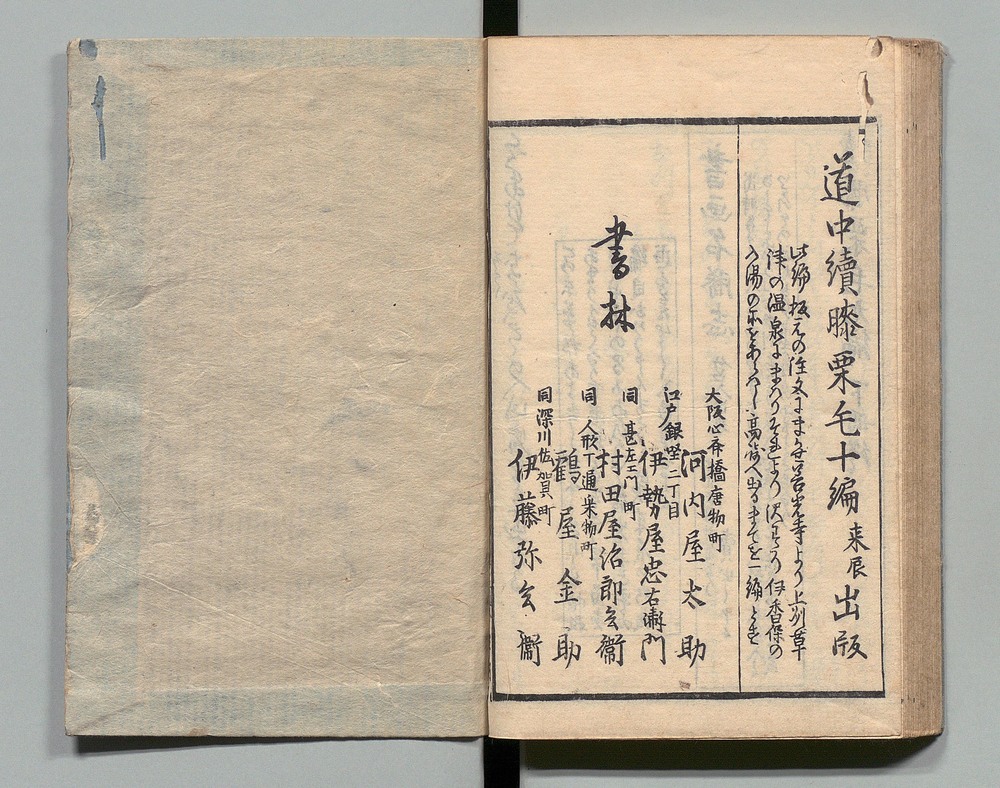 道中續膝栗毛十編 来辰 出版
此編板元の注文にまかせ善光寺より上州草
津の温泉にまはりそれより沢わたり伊香保の
入湯の所をあらはし高崎へ出るまでを一編とす
書林
大阪心斎橋唐物町
河内屋太助
江戸銀座二丁目
伊勢屋忠右衛門
同 甚左エ門町
村田屋治郎兵衛
同 人形丁通乗物町
靏屋金助
同 深川佐賀町
伊藤弥兵衛